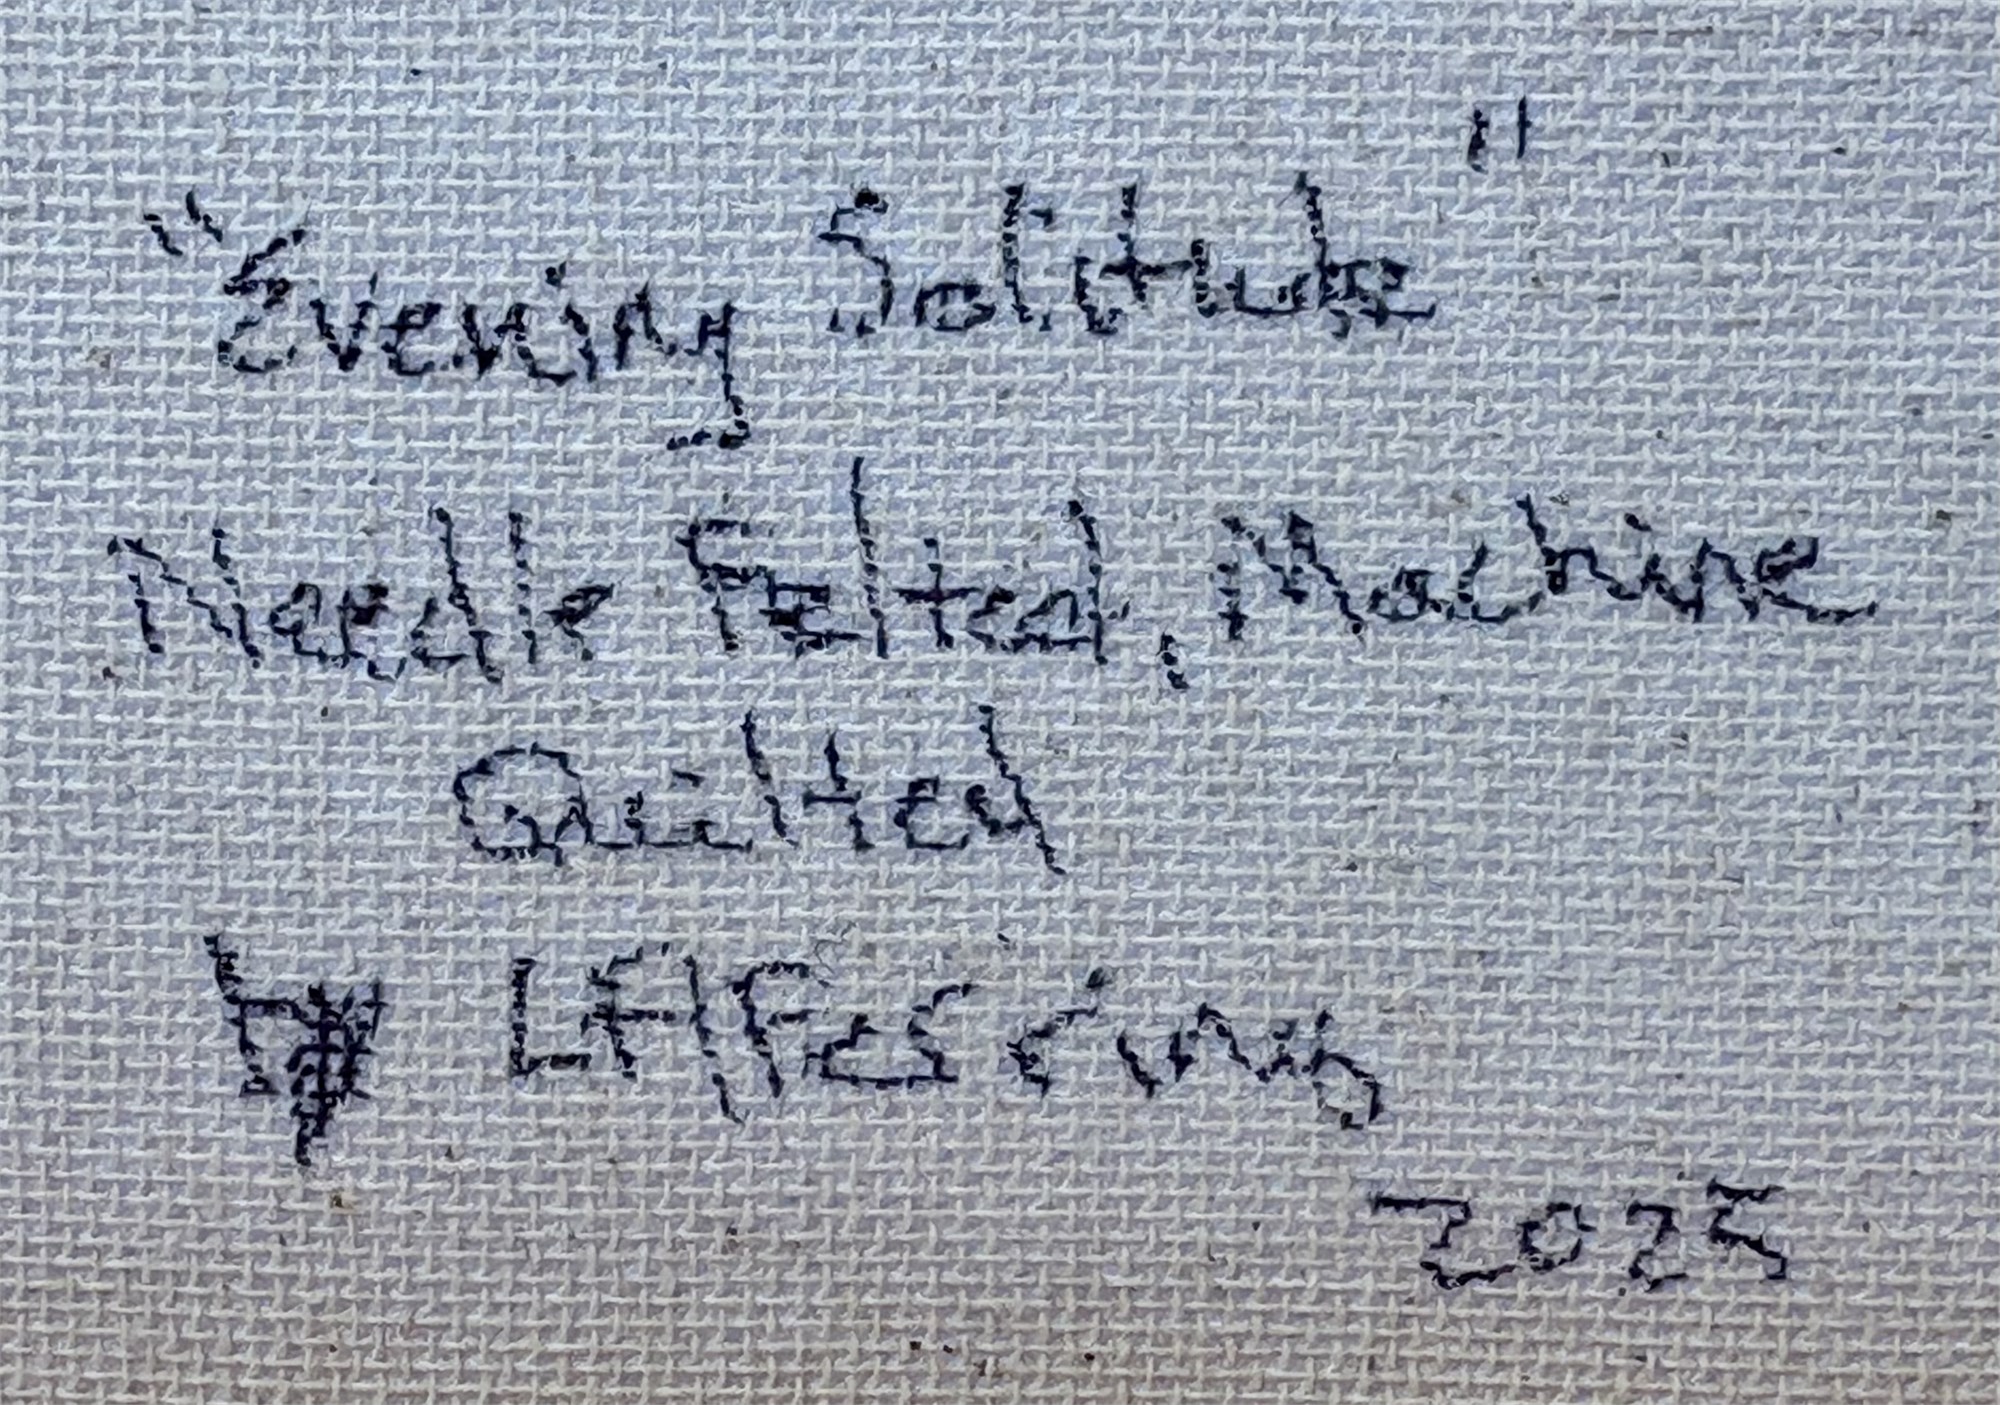 "Evening Solitude"
Needle Felted, Machine
Quilted
2025